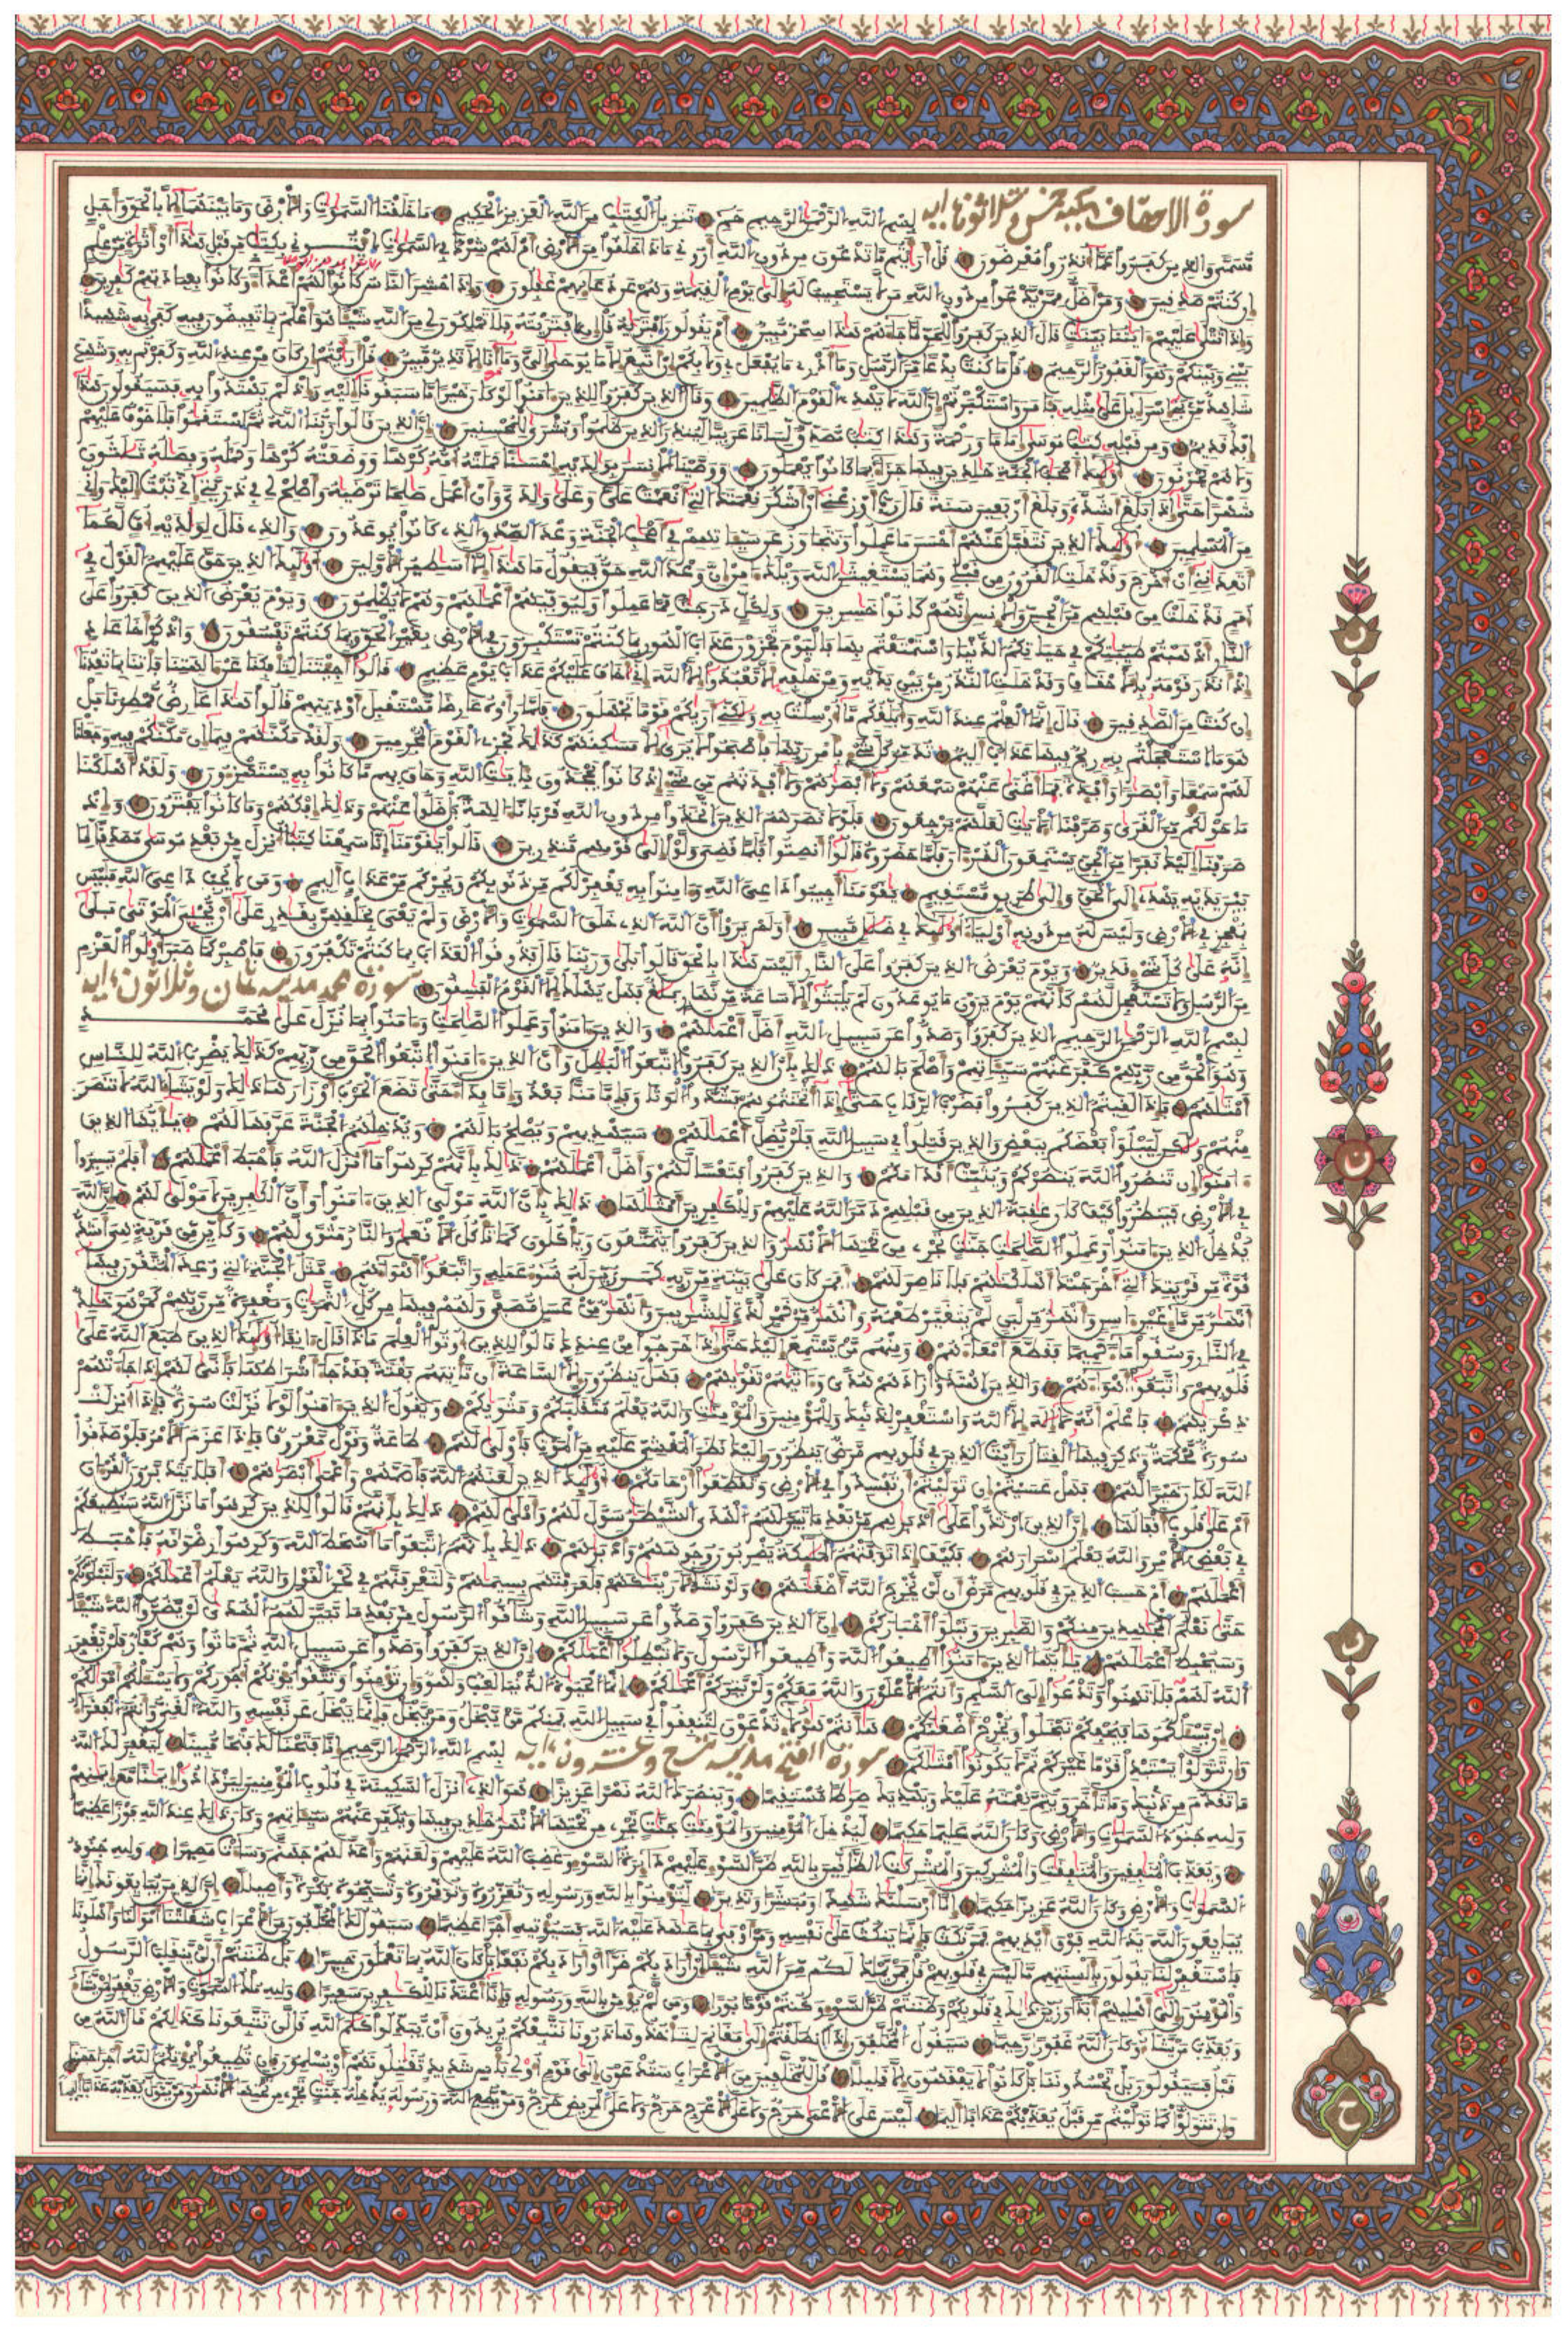 سورة الاحقاف مكية خمس وثلاثون ءاية بسم الله الرحمن الرحيم حم تنزيل الكتب من الله العزيز الحكيم ما خلقنا السموت والارض وما بينهما الا بالحق واجل
مسمى والذين كفروا عما انذروا معرضون قل ارايتم ما تدعون من دون الله اروني ماذا خلقوا من الارض ام لهم شرك في السموت ايتوني بكتب من قبل هذا او اثرة من علم
ان كنتم صدقين ومن اضل ممن يدعوا من دون الله من لا يستجيب له الى يوم القيمة وهم عن دعائهم غفلون واذا حشر الناس كانوا لهم اعداء وكانوا بعبادتهم كفرين
واذا تتلى عليهم ءايتنا بينت قال الذين كفروا للحق لما جاءهم هذا سحر مبين ام يقولون افتريه قل ان افتريته فلا تملكون لي من الله شيئا هو اعلم بما تفيضون فيه كفى به شهيدا
بيني وبينكم وهو الغفور الرحيم قل ما كنت بدعا من الرسل وما ادري ما يفعل بي ولا بكم ان اتبع الا ما يوحى الي وما انا الا نذير مبين قل ارايتم ان كان من عند الله وكفرتم به وشهد
شاهد من بني اسرءيل على مثله فءامن واستكبرتم ان الله لا يهدي القوم الظلمين وقال الذين كفروا للذين ءامنوا لو كان خيرا ما سبقونا اليه واذ لم يهتدوا به فسيقولون هذا
افك قديم ومن قبله كتب موسى اماما ورحمة وهذا كتب مصدق لسانا عربيا لتنذر الذين ظلموا وبشرى للمحسنين ان الذين قالوا ربنا الله ثم استقموا فلا خوف عليهم
ولا هم يحزنون اولئك اصحب الجنة خلدين فيها جزاء بما كانوا يعملون ووصينا الانسن بولديه حسنا حملته امه كرها ووضعته كرها وحمله وفصله ثلثون
شهرا حتى اذا بلغ اشده وبلغ اربعين سنة قال رب اوزعني ان اشكر نعمتك التي انعمت علي وعلى ولدي وان اعمل صلحا ترضيه واصلح لي في ذريتي اني تبت اليك واني
من المسلمين اولئك الذين يتقبل عنهم احسن ما عملوا ويتجاوز عن سيئاتهم في اصحب الجنة وعد الصدق الذي كانوا يوعدون والذي قال لولديه اف لكما
اتعدانني ان اخرج وقد خلت القرون من قبلي وهما يستغيثن الله ويلك ءامن ان وعد الله حق فيقول ما هذا الا اسطير الاولين اولئك الذين حق عليهم القول في
امم قد خلت من قبلهم من الجن والانس انهم كانوا خسرين ولكل درجت مما عملوا ولنوفيهم اعملهم وهم لا يظلمون ويوم يعرض الذين كفروا على
النار اذهبتم طيبتكم في حياتكم الدنيا واستمتعتم بها فاليوم تجزون عذاب الهون بما كنتم تستكبرون في الارض بغير الحق وبما كنتم تفسقون واذكر اخا عاد
اذ انذر قومه بالاحقاف وقد خلت النذر من بين يديه ومن خلفه الا تعبدوا الا الله اني اخاف عليكم عذاب يوم عظيم قالوا اجئتنا لتافكنا عن ءالهتنا فاتنا بما تعدنا
ان كنت من الصدقين قال انما العلم عند الله وابلغكم ما ارسلت به ولكني اريكم قوما تجهلون فلما راوه عارضا مستقبل اوديتهم قالوا هذا عارض ممطرنا بل
هو ما استعجلتم به ريح فيها عذاب اليم تدمر كل شيء بامر ربها فاصبحوا لا ترى الا مسكنهم كذلك نجزي القوم المجرمين ولقد مكنهم فيما ان مكنكم فيه وجعلنا
لهم سمعا وابصرا وافئدة فما اغنى عنهم سمعهم ولا ابصرهم ولا افئدتهم من شيء اذ كانوا يجحدون بءايت الله وحاق بهم ما كانوا به يستهزءون ولقد اهلكنا
ما حولكم من القرى وصرفنا الايت لعلهم يرجعون فلولا نصرهم الذين اتخذوا من دون الله قربانا ءالهة بل ضلوا عنهم وذلك افكهم وما كانوا يفترون واذ
صرفنا اليك نفرا من الجن يستمعون القرءان فلما حضروه قالوا انصتوا فلما قضي ولوا الى قومهم منذرين قالوا يقومنا انا سمعنا كتبا انزل من بعد موسى مصدقا لما
بين يديه يهدي الى الحق والى طريق مستقيم يقومنا اجيبوا داعي الله وءامنوا به يغفر لكم من ذنوبكم ويجركم من عذاب اليم ومن لا يجب داعي الله فليس
بمعجز في الارض وليس له من دونه اولياء اولئك في ضلل مبين اولم يروا ان الله الذي خلق السموت والارض ولم يعي بخلقهن بقدر على ان يحيي الموتى بلى
انه على كل شيء قدير ويوم يعرض الذين كفروا على النار اليس هذا بالحق قالوا بلى وربنا قال فذوقوا العذاب بما كنتم تكفرون فاصبر كما صبر اولوا العزم
من الرسل ولا تستعجل لهم كانهم يوم يرون ما يوعدون لم يلبثوا الا ساعة من نهار بلغ فهل يهلك الا القوم الفسقون سورة محمد مدنية ثمان وثلاثون ءاية
بسم الله الرحمن الرحيم الذين كفروا وصدوا عن سبيل الله اضل اعملهم والذين ءامنوا وعملوا الصلحت وءامنوا بما نزل على محمد
وهو الحق من ربهم كفر عنهم سيئاتهم واصلح بالهم ذلك بان الذين كفروا اتبعوا البطل وان الذين ءامنوا اتبعوا الحق من ربهم كذلك يضرب الله للناس
امثلهم فاذا لقيتم الذين كفروا فضرب الرقاب حتى اذا اثخنتموهم فشدوا الوثاق فاما منا بعد واما فداء حتى تضع الحرب اوزارها ذلك ولو يشاء الله لانتصر
منهم ولكن ليبلوا بعضكم ببعض والذين قتلوا في سبيل الله فلن يضل اعملهم سيهديهم ويصلح بالهم ويدخلهم الجنة عرفها لهم يايها الذين
ءامنوا ان تنصروا الله ينصركم ويثبت اقدامكم والذين كفروا فتعسا لهم واضل اعملهم ذلك بانهم كرهوا ما انزل الله فاحبط اعملهم افلم يسيروا
في الارض فينظروا كيف كان عقبة الذين من قبلهم دمر الله عليهم وللكفرين امثلها ذلك بان الله مولى الذين ءامنوا وان الكفرين لا مولى لهم ان الله
يدخل الذين ءامنوا وعملوا الصلحت جنت تجري من تحتها الانهر والذين كفروا يتمتعون وياكلون كما تاكل الانعم والنار مثوى لهم وكاين من قرية هي اشد
قوة من قريتك التي اخرجتك اهلكنهم فلا ناصر لهم افمن كان على بينة من ربه كمن زين له سوء عمله واتبعوا اهواءهم مثل الجنة التي وعد المتقون فيها
انهر من ماء غير ءاسن وانهر من لبن لم يتغير طعمه وانهر من خمر لذة للشربين وانهر من عسل مصفى ولهم فيها من كل الثمرت ومغفرة من ربهم كمن هو خلد
في النار وسقوا ماء حميما فقطع امعاءهم ومنهم من يستمع اليك حتى اذا خرجوا من عندك قالوا للذين اوتوا العلم ماذا قال ءانفا اولئك الذين طبع الله على
قلوبهم واتبعوا اهواءهم والذين اهتدوا زادهم هدى وءاتيهم تقويهم فهل ينظرون الا الساعة ان تاتيهم بغتة فقد جاء اشراطها فانى لهم اذا جاءتهم
ذكريهم فاعلم انه لا اله الا الله واستغفر لذنبك وللمؤمنين والمؤمنت والله يعلم متقلبكم ومثويكم ويقول الذين ءامنوا لولا نزلت سورة فاذا انزلت
سورة محكمة وذكر فيها القتال رايت الذين في قلوبهم مرض ينظرون اليك نظر المغشي عليه من الموت فاولى لهم طاعة وقول معروف فاذا عزم الامر فلو صدقوا
الله لكان خيرا لهم فهل عسيتم ان توليتم ان تفسدوا في الارض وتقطعوا ارحامكم اولئك الذين لعنهم الله فاصمهم واعمى ابصرهم افلا يتدبرون القرءان
ام على قلوب اقفالها ان الذين ارتدوا على ادبرهم من بعد ما تبين لهم الهدى الشيطن سول لهم واملى لهم ذلك بانهم قالوا للذين كرهوا ما نزل الله سنطيعكم
في بعض الامر والله يعلم اسرارهم فكيف اذا توفتهم الملئكة يضربون وجوههم وادبرهم ذلك بانهم اتبعوا ما اسخط الله وكرهوا رضونه فاحبط
اعملهم ام حسب الذين في قلوبهم مرض ان لن يخرج الله اضغنهم ولو نشاء لارينكهم فلعرفتهم بسيمهم ولتعرفنهم في لحن القول والله يعلم اعملكم ولنبلونكم
حتى نعلم المجهدين منكم والصبرين ونبلوا اخباركم ان الذين كفروا وصدوا عن سبيل الله وشاقوا الرسول من بعد ما تبين لهم الهدى لن يضروا الله شيئا
وسيحبط اعملهم يايها الذين ءامنوا اطيعوا الله واطيعوا الرسول ولا تبطلوا اعملكم ان الذين كفروا وصدوا عن سبيل الله ثم ماتوا وهم كفار فلن يغفر
الله لهم فلا تهنوا وتدعوا الى السلم وانتم الاعلون والله معكم ولن يتركم اعملكم انما الحيوة الدنيا لعب ولهو وان تؤمنوا وتتقوا يؤتكم اجوركم ولا يسئلكم امولكم
ان يسئلكموها فيحفكم تبخلوا ويخرج اضغنكم هانتم هؤلاء تدعون لتنفقوا في سبيل الله فمنكم من يبخل ومن يبخل فانما يبخل عن نفسه والله الغني وانتم الفقراء
وان تتولوا يستبدل قوما غيركم ثم لا يكونوا امثلكم سورة الفتح مدنية تسع وعشرون ءاية بسم الله الرحمن الرحيم انا فتحنا لك فتحا مبينا ليغفر لك الله
ما تقدم من ذنبك وما تاخر ويتم نعمته عليك ويهديك صرطا مستقيما وينصرك الله نصرا عزيزا هو الذي انزل السكينة في قلوب المؤمنين ليزدادوا ايمنا مع ايمنهم
ولله جنود السموت والارض وكان الله عليما حكيما ليدخل المؤمنين والمؤمنت جنت تجري من تحتها الانهر خلدين فيها ويكفر عنهم سيئاتهم وكان ذلك عند الله فوزا عظيما
ويعذب المنفقين والمنفقت والمشركين والمشركت الظانين بالله ظن السوء عليهم دائرة السوء وغضب الله عليهم ولعنهم واعد لهم جهنم وساءت مصيرا ولله جنود
السموت والارض وكان الله عزيزا حكيما انا ارسلنك شهدا ومبشرا ونذيرا لتؤمنوا بالله ورسوله وتعزروه وتوقروه وتسبحوه بكرة واصيلا ان الذين يبايعونك انما
يبايعون الله يد الله فوق ايديهم فمن نكث فانما ينكث على نفسه ومن اوفى بما عهد عليه الله فسنؤتيه اجرا عظيما سيقول لك المخلفون من الاعراب شغلتنا امولنا واهلونا
فاستغفر لنا يقولون بالسنتهم ما ليس في قلوبهم قل فمن يملك لكم من الله شيئا ان اراد بكم ضرا او اراد بكم نفعا بل كان الله بما تعملون خبيرا بل ظننتم ان لن ينقلب الرسول
والمؤمنون الى اهليهم ابدا وزين ذلك في قلوبكم وظننتم ظن السوء وكنتم قوما بورا ومن لم يؤمن بالله ورسوله فانا اعتدنا للكفرين سعيرا ولله ملك السموت والارض يغفر لمن يشاء
ويعذب من يشاء وكان الله غفورا رحيما سيقول المخلفون اذا انطلقتم الى مغانم لتاخذوها ذرونا نتبعكم يريدون ان يبدلوا كلم الله قل لن تتبعونا كذلكم قال الله من
قبل فسيقولون بل تحسدوننا بل كانوا لا يفقهون الا قليلا قل للمخلفين من الاعراب ستدعون الى قوم اولي باس شديد تقتلونهم او يسلمون فان تطيعوا يؤتكم الله اجرا حسنا
وان تتولوا كما توليتم من قبل يعذبكم عذابا اليما ليس على الاعمى حرج ولا على الاعرج حرج ولا على المريض حرج ومن يطع الله ورسوله ندخله جنت تجري من تحتها الانهر ومن يتول نعذبه عذابا اليما
ن
ن
ن
ح